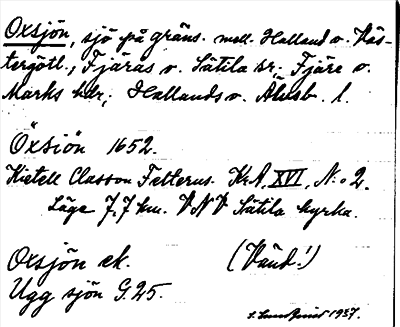 Oxsjön, sjö på gräns. mell. Halland o. Väs-
tergötl., Fjärås o. Sätila sr, Fjäre o.
Marks hdr, Hallands o. Älvsb. l.
Öxsiön 1652.
Kietell Classon Felterus. Kr.A. XVI, N:o 2.
Läge 7,7 km. VNV Sätila kyrka.
Oxsjön ek.
(Vänd!)
Ugg sjön G.25.
1937.